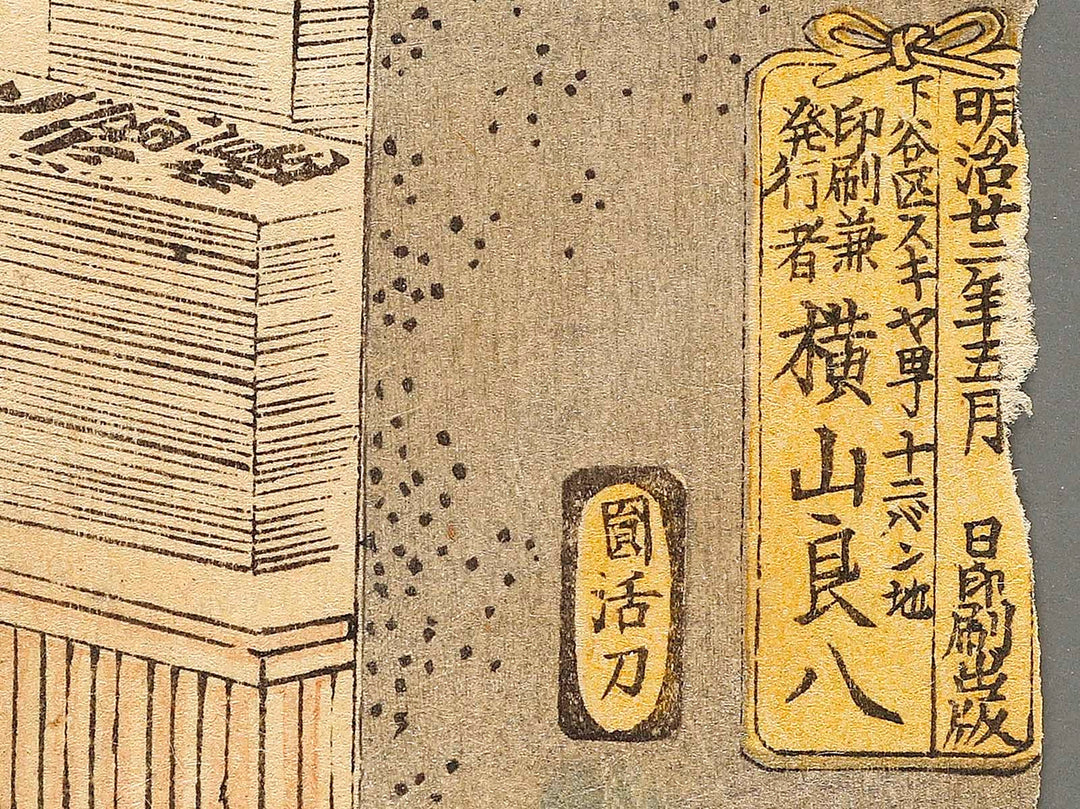 明治廿二年五月 日印刷出版
下谷区スキヤ町十二バン地
印刷兼
発行者
横山良八
圓活刀